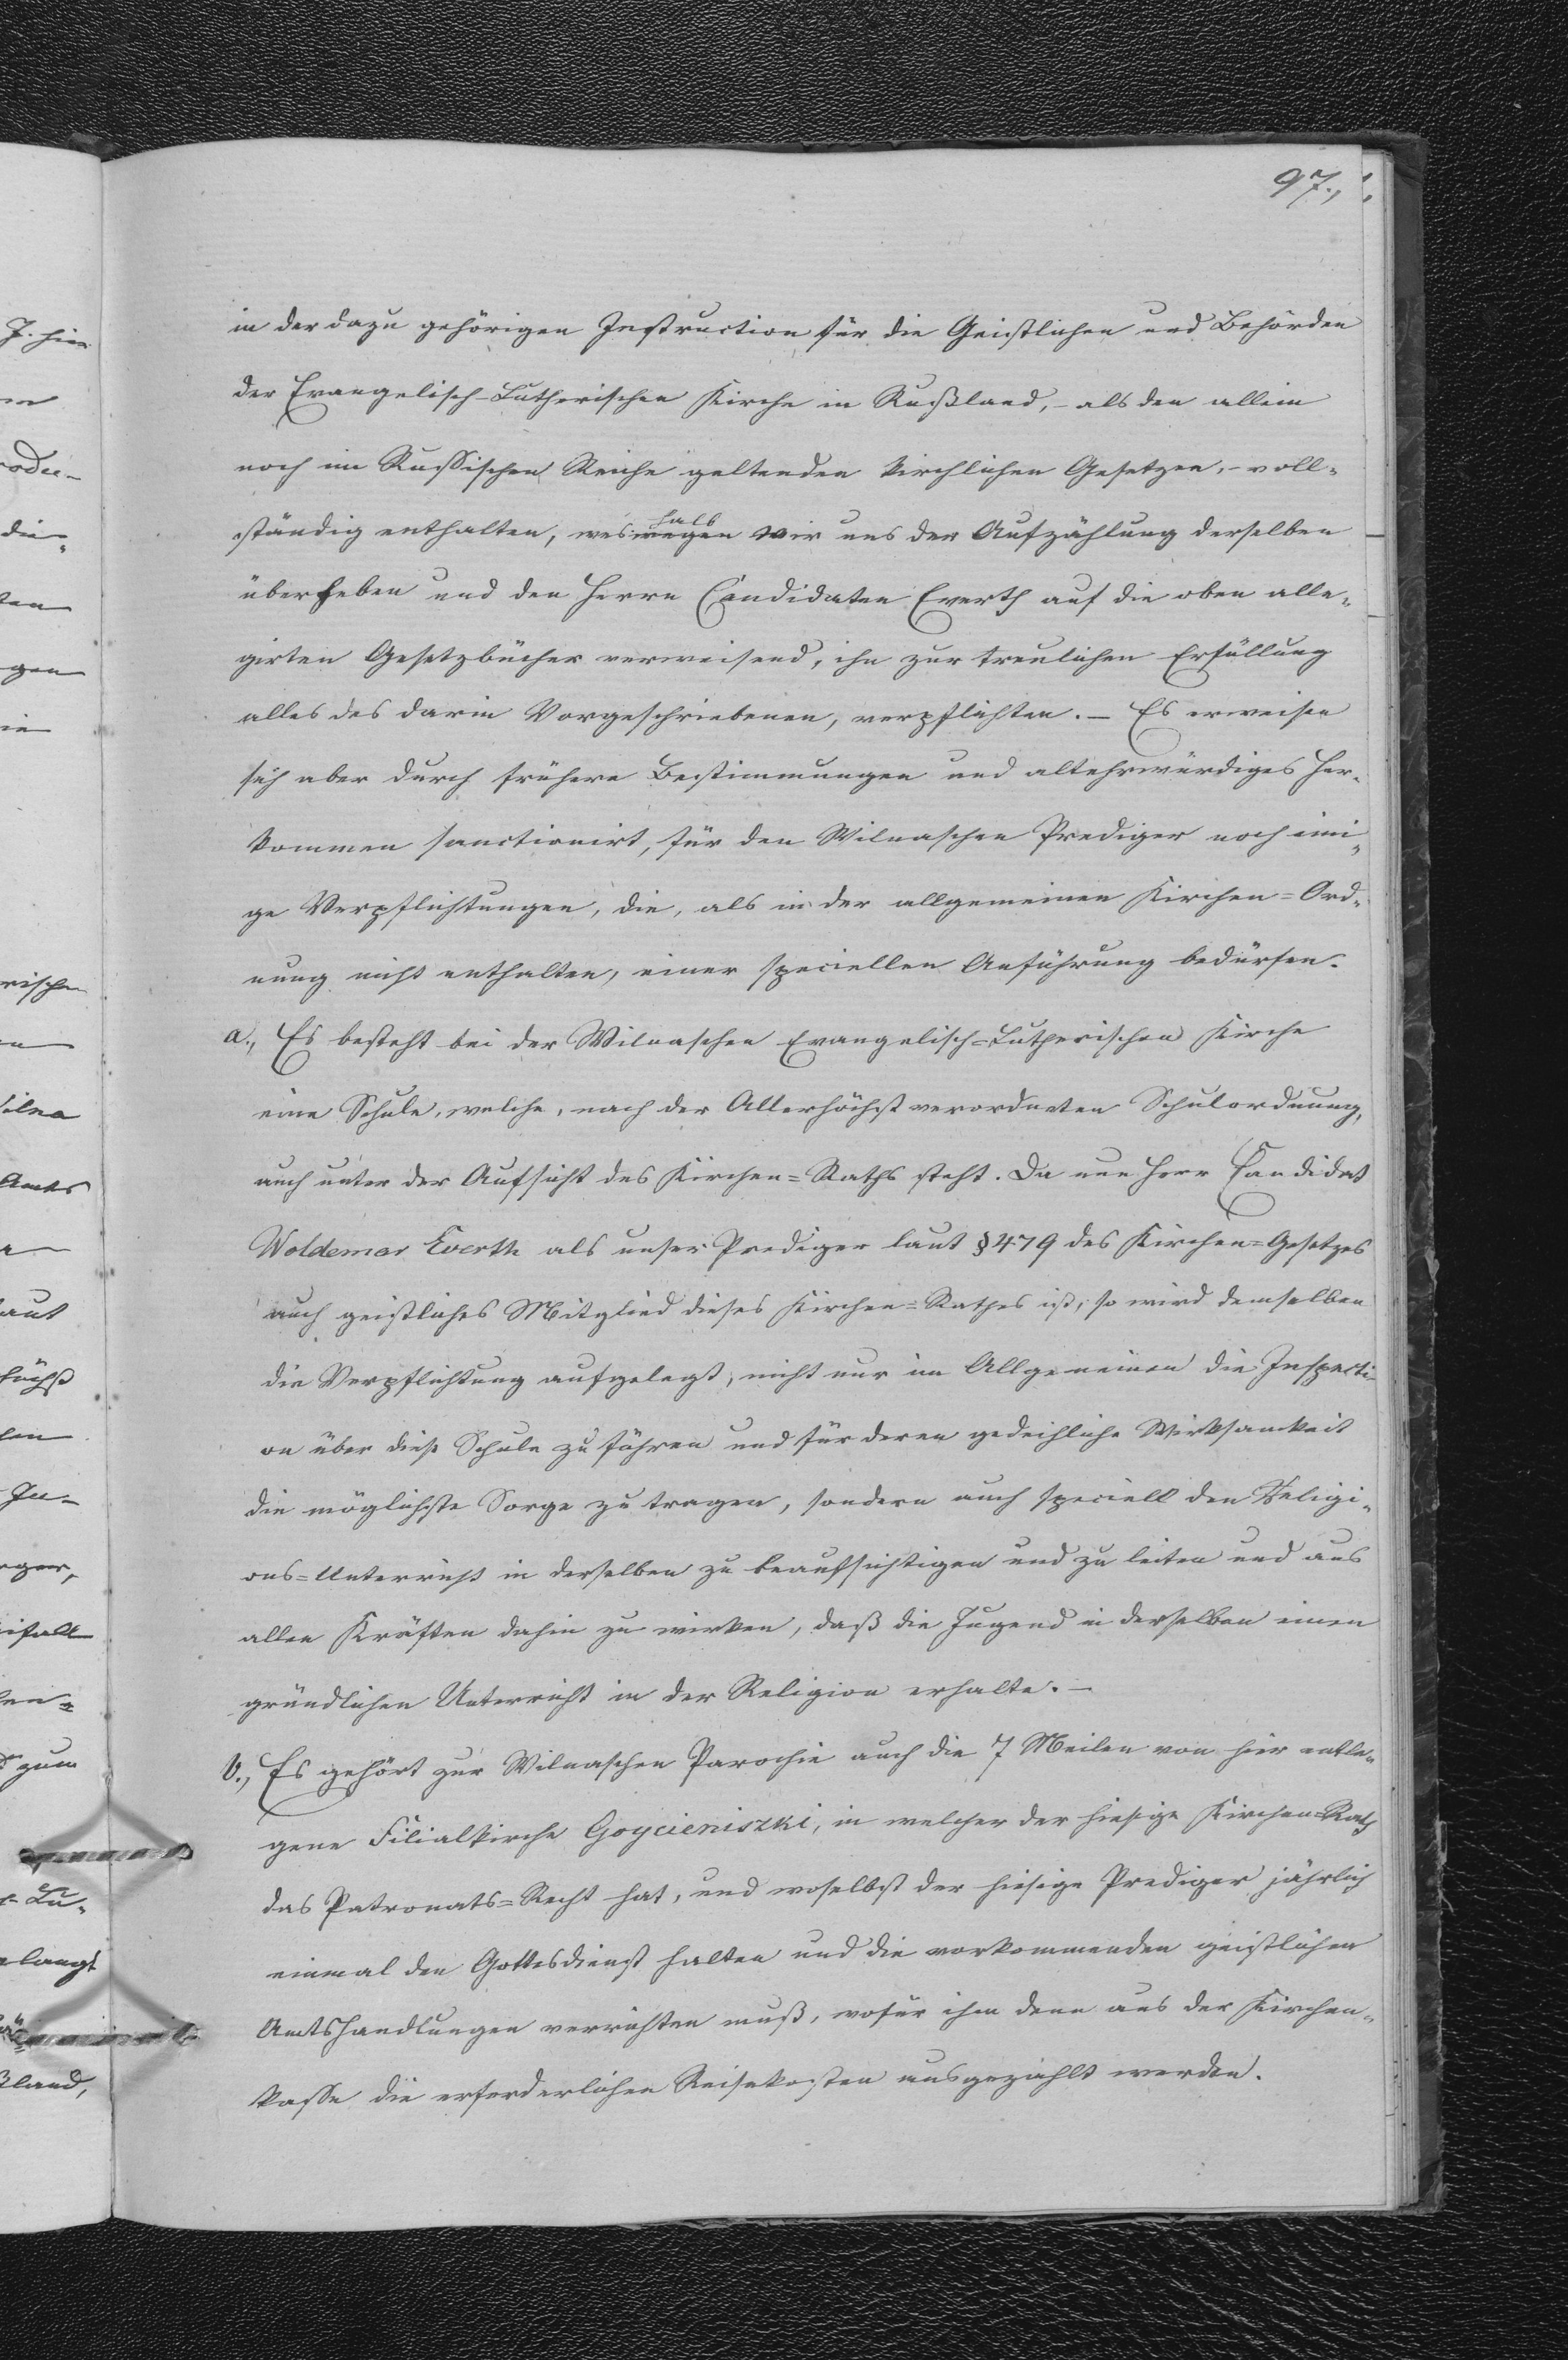 97.,
in der dazu gehörigen Instruction für die Geistlichen und Behörden
der Evangelisch-Lutherischen Kirche in Rußland, - als den allein
noch im Russischen Reiche geltenden kirchlichen Gesetzen, - voll-
ständig enthalten, weswegen halb wir uns der Aufzählung derselben
überheben und den Herrn Candidaten Everth auf die oben alle-
girten Gesetzbücher verweisend, ihn zur treulichen Erfüllung
alles des darin Vorgeschriebenen, verpflichten. — Es erweisen
sich aber durch frühere Bestimmungen und altehrwürdiges Her-
kommen sanctionirt, für den Wilnaschen Prediger noch eini-
ge Verpflichtungen, die, als in der allgemeinen Kirchen=Ord-
nung nicht enthalten, einer speciellen Anführung bedürfen.
a., Es besteht bei der Wilnaschen Evangelisch=Lutherischen Kirche
eine Schule, welche, nach der Allerhöchst verordneten Schulordnung,
auch unter der Aufsicht des Kirchen=Raths steht. Da nun Herr Candidat
Woldemar Everth als unser Prediger laut § 479 des Kirchen=Gesetzes
auch geistliches Mitglied dieses Kirchen=Rathes ist, so wird demselben
die Verpflichtung aufgelegt, nicht nur im Allgemeinen die Inspecti-
on über diese Schule zu führen und für deren gedeihliche Wirksamkeit
die möglichste Sorge zu tragen, sondern auch speciell den Religi-
ons=Unterricht in derselben zu beaufsichtigen und zu leiten und aus
allen Kräften dahin zu wirken, daß die Jugend in derselben einen
gründlichen Unterricht in der Religion erhalte. —
b., Es gehört zur Wilnaschen Parochie auch die 7 Meilen von hier entle-
gene Filialkirche Goycieniszki, in welcher der hiesige Kirchen=Rath
das Patronats=Recht hat, und woselbst der hiesige Prediger jährlich
einmal den Gottesdienst halten und die vorkommenden geistlichen
Amtshandlungen verrichten muß, wofür ihm denn aus der Kirchen-
kasse die erforderlichen Reisekosten ausgezahlt werden.